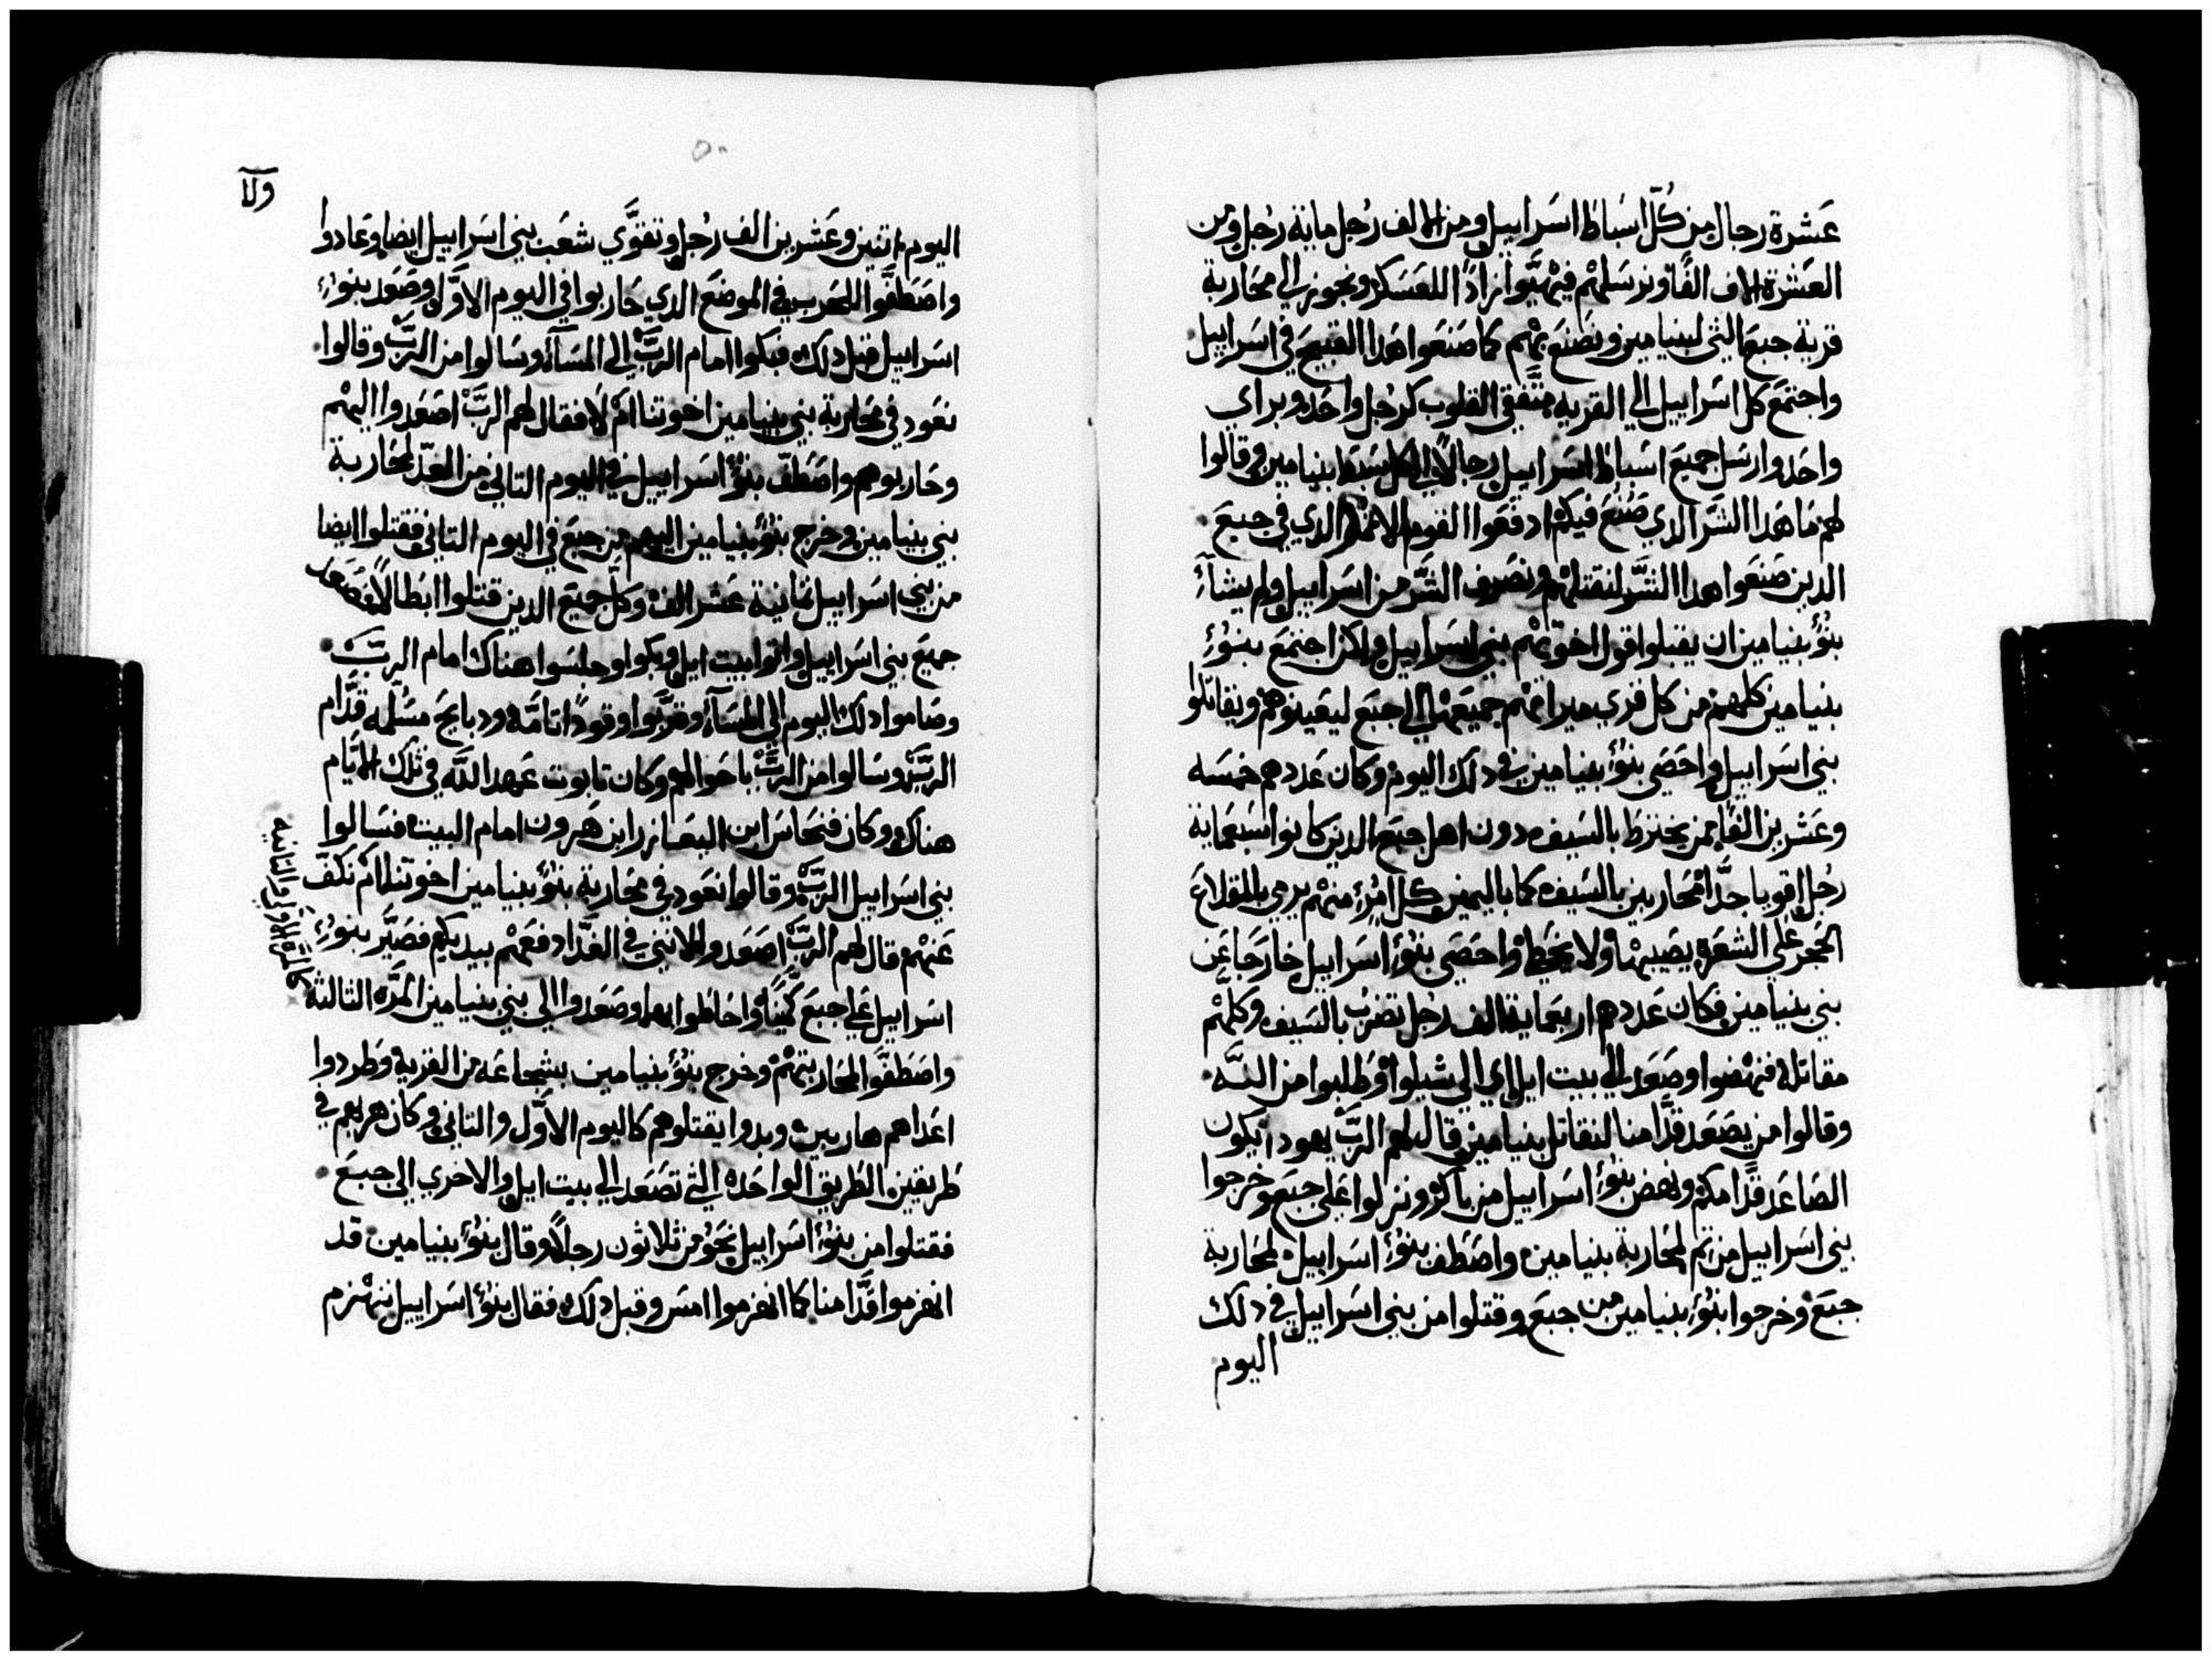 عشرة رجال من كل اسباط اسراييل ومن الالف رجل ماية رجل ومن
العشرة الاف الفا ونرسلهم فيهيوا زادا للعسكر ونجوز الي محاربة
قرية جبع التي لبنيامين ونصنع بهم كما صنعوا هدا القبيح في اسراييل
واجتمع كل اسراييل الي القريه متفقي القلوب كرجل واحد وبراي
واحد وارسل جميع اسباط اسراييل رجالا الي كل سبط بنيامين وقالوا
لهم ما هدا الشر الدي صنع فيكم ادفعوا القوم الدي في جبع
الدين صنعوا هدا الشر لنقتلهم ونصرف الشر من اسراييل ولم يشآء
بنوء بنيامين ان يقبلوا قول اخوتهم بني اسراييل ولكن اجتمع بنوء
بنيامين كلهم من كل قري ميراتهم جميعها الي جبع ليعينوهم ويقاتلوا
بني اسراييل واحصي بنوء بنيامين في دلك اليوم وكان عددهم خمسه
وعشرين الفا ممن يخترط بالسيف دون اهل جبع الدين كانوا سبعماية
رجل اقويا جدا محاربين بالسيف كما باليمين كل امرء منهم يرمي بالمقلاع
الحجر علي الشعرة يصيبها ولا يخط واحصي بنوء اسراييل خارجا عن
بني بنيامين فكان عددهم اربعماية الف رجل تضرب بالسيف وكلهم
مقاتلة فنهضوا وصعد الي بيت ايل اي الي شيلوا وطلبوا من الله
وقالوا من يصعد قدامنا لنقاتل بنيامين قال لهم الرب يهودا يكون
الصاعد قدامكم ونهض بنوء اسراييل من باكر ونزلوا علي جبع وخرجوا
بني اسراييل من تم لمحاربة بنيامين واصطف بنوء اسراييل لمحاربة
جبع وخرجوا بنوء بنيامين من جبع وقتلوا من بني اسراييل في دلك
اليوم
ولا
٥٠
اليوم اتنين وعشرين الف رجل وتقوي شعب بني اسراييل ايضا وعادوا
واصطفوا للحرب في الموضع الدي حاربوا في اليوم الاول وصعد بنوء
اسراييل قبل دلك فبكوا امام الرب الي المسآء وسالوا من الرب وقالوا
نعود في محاربة بني بنيامين اخوتنا ام لا فقال لهم الرب اصعدوا اليهم
وحاربوهم واصطف بنوء اسراييل في اليوم التاني من الغد لمحاربة
بني بنيامين وخرج بنوء بنيامين اليهم من جبع في اليوم التاني فقتلوا ايضا
من بني اسراييل تمانية عشر الف وكل جميع الدين قتلوا ابطالا فصعد
جميع بني اسراييل واتوا بيت ايل وبكوا وجلسوا هناك امام الرب
وصاموا دلك اليوم الي المسآء وقربوا وقودا تامه ودبايح مسلمه قدام
الرب وسالوا من الرب باحوالهم وكان تابوت عهد الله في تلك الايام
هناك وكان فنحاس ابن اليعازر ابن هرون امام البيت فسالوا
بني اسراييل الرب وقالوا نعود في محاربة بنوء بنيامين اخوتنا ام نكف
عنهم قال لهم الرب اصعدوا لانني في الغد ادفعهم بيديكم فصير بنوء
اسراييل علي جبع كمينا واحاطوا بها وصعدوا الي بني بنيامين المره التالتة
كالمرة الاولي والتانيه
واصطفوا لمحاربتهم وخرج بنوء بنيامين بشجاعه من القرية وطردوا
اعداهم هاربين وبدوا يقتلوهم كاليوم الاول والتاني وكان هربهم في
طريقين الطريق الواحده التي تصعد الي بيت ايل والاخري الي جبع
فقتلوا من بنوء اسراييل نحو من ثلاثون رجلا وقال بنوء بنيامين قد
انهزموا قدامنا كما انهزموا امس وقبل دلك فقال بنوء اسراييل ننهزم